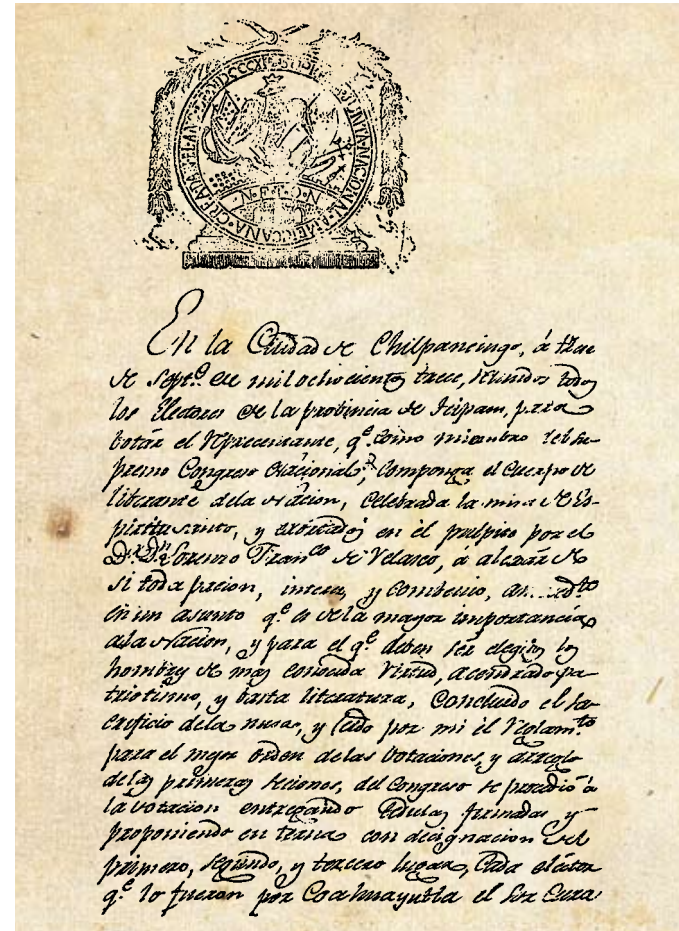 N.F.T.O.N
En la Ciudad de Chilpancingo, á trece
de Sept.e de mil ochocientos trece, reunidos todos
los Electores de la provincia de Tecpam, para
votár el Representante, q.e como miembro del Su-
premo Congreso Nacional, componga el cuerpo de
liberante de la Nacion, celebrada la misa de Es-
piritu santo, y exôrtados en el pulpito por el
D.r D.n Lorenzo Fran.co de Velasco, á alexár de
si toda pacion, interes, y combenio,
en un asunto q.e es de la mayor importancia
a la Nacion, y para el q.e deben sér elegidos los
hombres de mas conocida virtud, acendrado pa-
triotismo, y basta literatura, Concluido el Sa-
crificio de la misa, y leido por mi el Reglam.to
para el mejor orden de las Votaciones, y arreglo
de las primeras seciones, del Congreso se procedió á
la votacion entregando Cedulas firmadas y
proponiendo en terna con decignacion del
primero, segundo, y tercero lugar, Cada elector
q.e lo fueron por Coahuayutla el Sor Cura